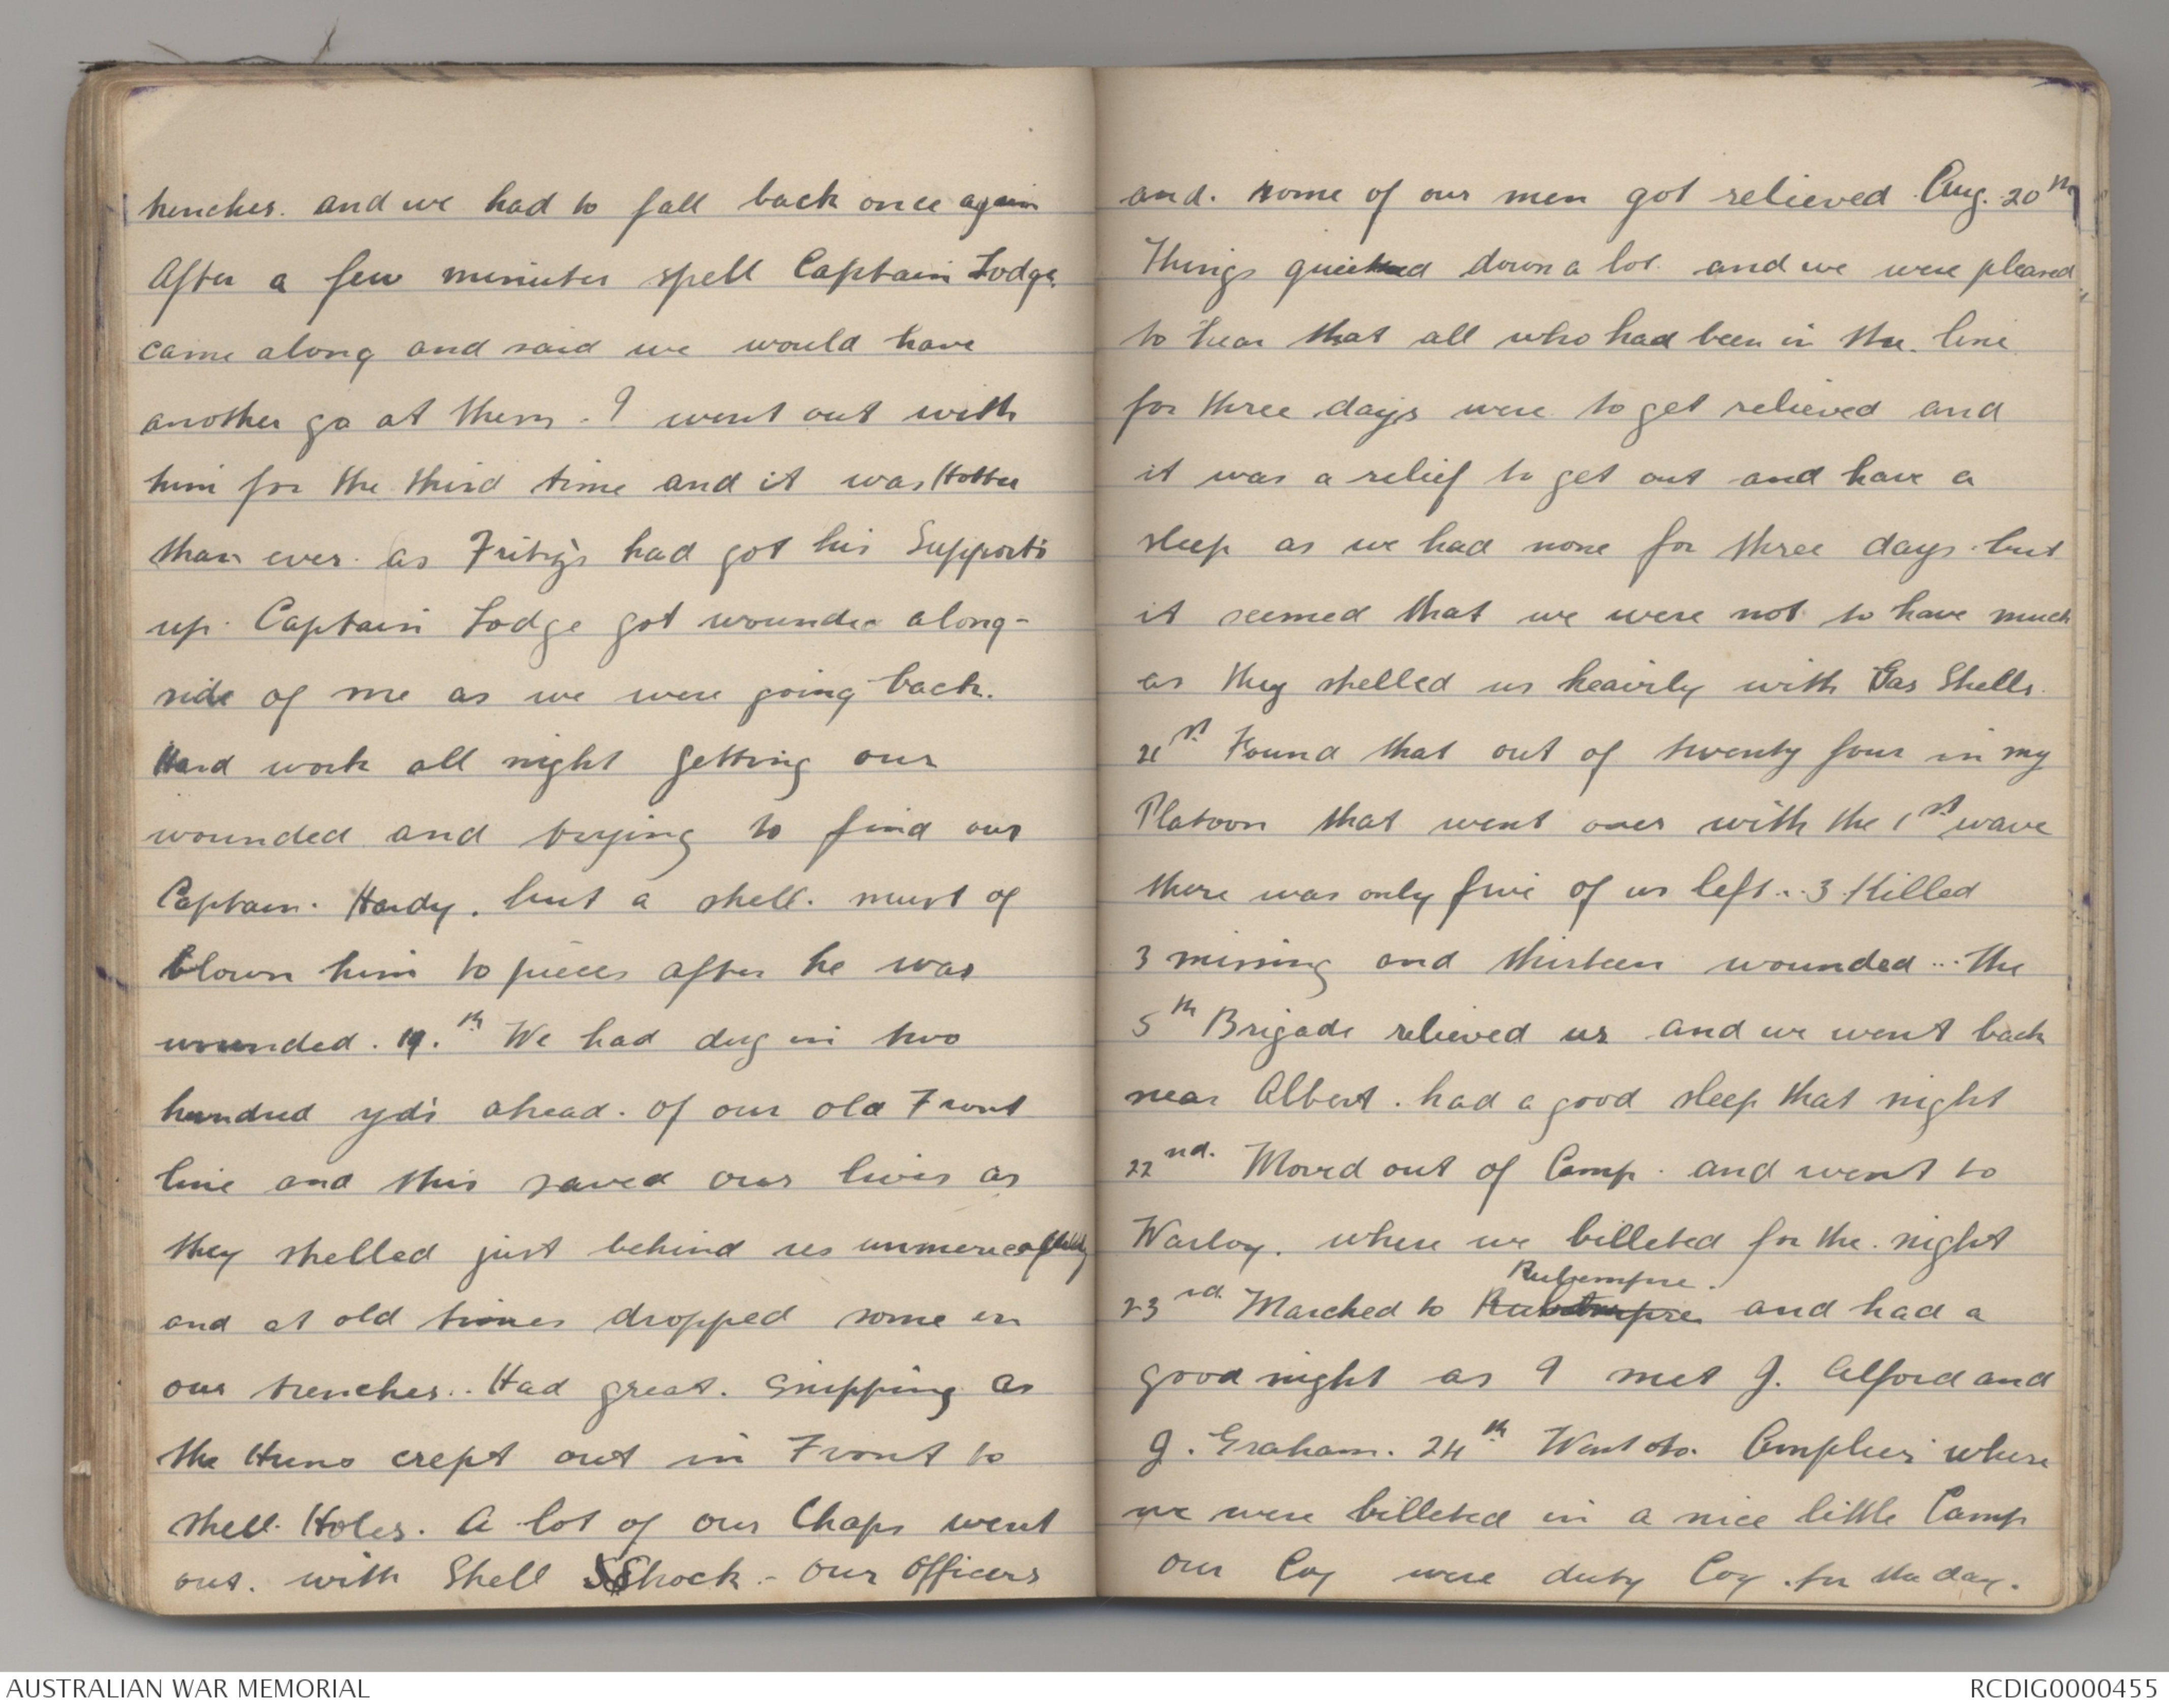 trenches. and we had to fall back once again
After a few minutes spell Captain Lodge
came along and said we would have
another go at them. I went out with
him for the third time and it was Hotter
than ever. as Fritzy's had got his Supports
up. Captain Lodge got wounded along-
side of me as we were going back.
Hard work all night getting our
wounded and trying to find our
Captain. Hardy. but a shell. must of
blown him to pieces after he was
wounded. 19.th We had dug in two
hundred yds ahead. of our old Front
line and this saved our lives as
they shelled just behind us unmercifully
and at old times dropped some in
our trenches.. Had great. Snipping as
the Huns crept out in Front to
shell Holes. A lot of our Chaps went
out. with Shell Shock.- our Officers
and. some of our men got relieved. Aug. 20th
Things quietned down a lot. and we were pleased
to hear that all who had been in the. line
for three days were to get relieved and
it was a relief to get out and have a
sleep as we had none for three days. but
it seemed that we were not to have much
as they shelled us heavily with Gas Shells.
21st Found that out of twenty four in my
Platoon that went over with the 1st wave
there was only five of us left... 3 Killed
3 missing and thirteen wounded... The
5th Brigade relieved us and we went back
near Albert. had a good sleep that night
22nd. Moved out of Camp. and went to
Warloy. where we billeted for the. night
Rubempre.
23rd. Marched to Rubempre and had a
good night as I met J. Alford and
J. Graham. 24th Went to. Amplier where
we were billeted in a nice little Camp
our Coy were duty Coy. for the day.
AUSTRALIAN WAR MEMORIAL
RCDIG0000455